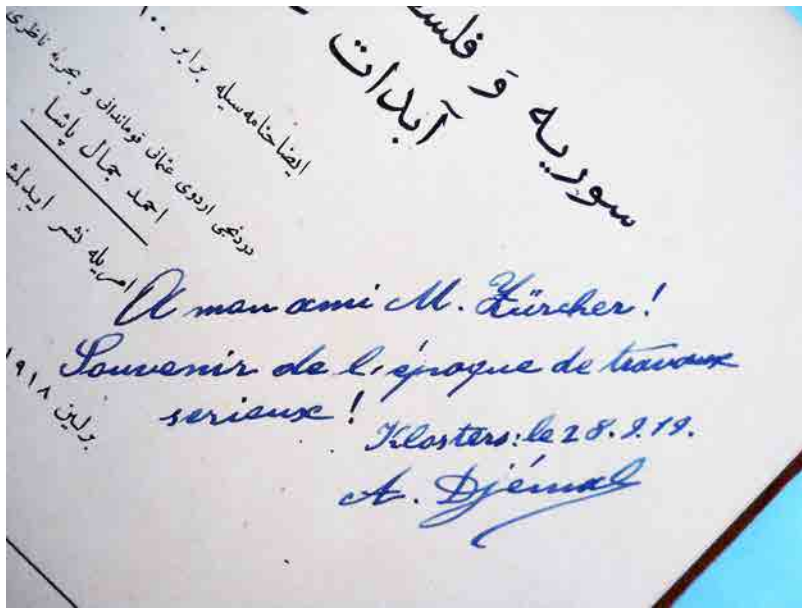 سوریه وَ
آبدات
ایضاحنامه سیله برابر ۱۰۰
دردنجی اردوی عثمانی قوماندانی و بحریه ناظری
احمد جمال پاشا
امریله نشر
برلین ۱۹۱۸
A mon ami M. Zürcher!
Souvenir de l'époque de travaux
serieux!
Klosters: le 28.9.19.
A. Djémal